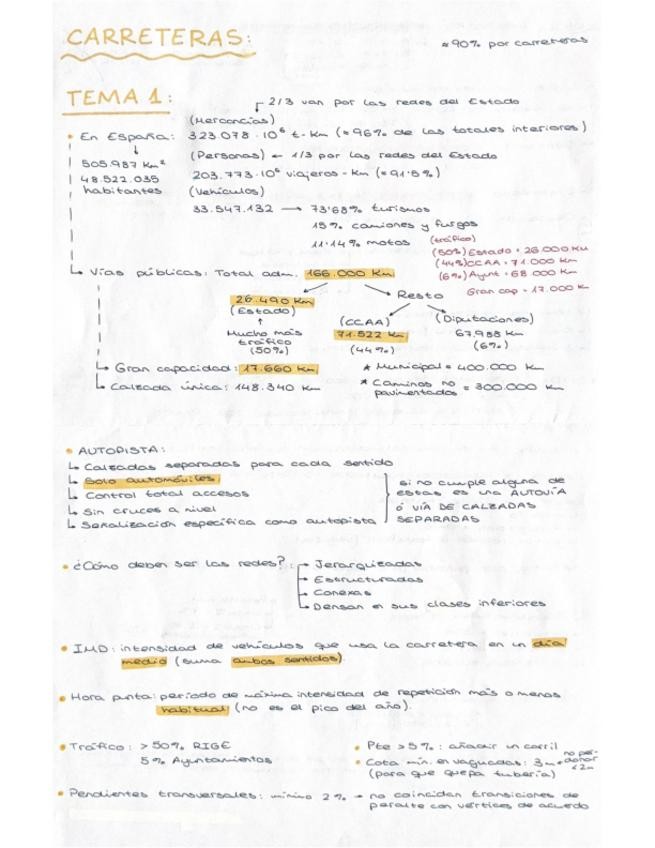 CARRETERAS:
≈ 90% por carreteras
TEMA 1:
2/3 van por las redes del Estado
(Mercancías)
• En España: 323.078 · 10⁶ t-km (≈ 96% de las totales interiores)
505.987 km²
48.522.035
habitantes
(Personas) ← 1/3 por las redes del Estado
203.773 · 10⁶ viajeros-km (≈ 91'5%)
(Vehículos)
33.547.132 → 73'68% turismos
15% camiones y furgos
11'14% motos
(tráfico)
(50%) Estado = 26.000 km
(44%) CCAA = 71.000 km
(6%) Ayunt = 68.000 km
Gran cap = 17.000 km
↳ Vías públicas: Total adm. 166.000 km
26.490 km
(Estado)
↑
Mucho más
tráfico
(50%)
Resto
(CCAA)
71.522 km
(44%)
(Diputaciones)
67.988 km
(6%)
↳ Gran capacidad: 17.660 km
↳ Calzada única: 148.340 km
* Municipal = 400.000 km
* Caminos no pavimentados = 300.000 km
• AUTOPISTA:
↳ Calzadas separadas para cada sentido
↳ Solo automóviles
↳ Control total accesos
↳ Sin cruces a nivel
↳ Señalización específica como autopista
si no cumple alguna de
estas es una AUTOVÍA
ó VÍA DE CALZADAS
SEPARADAS
• ¿Cómo deben ser las redes?:
→ Jerarquizadas
→ Estructuradas
→ Conexas
→ Densan en sus clases inferiores
• IMD: intensidad de vehículos que usa la carretera en un día
medio (suma ambos sentidos).
• Hora punta: período de máxima intensidad de repetición más o menos
habitual (no es el pico del año).
• Tráfico: > 50% RIGE
5% Ayuntamientos
• Pte > 5%: añadir un carril
• Cota mín. en vaguadas: 3m
(para que quepa tubería)
• Pendientes transversales: mínimo 2% → no coincidan transiciones de
peralte con vértices de acuerdo